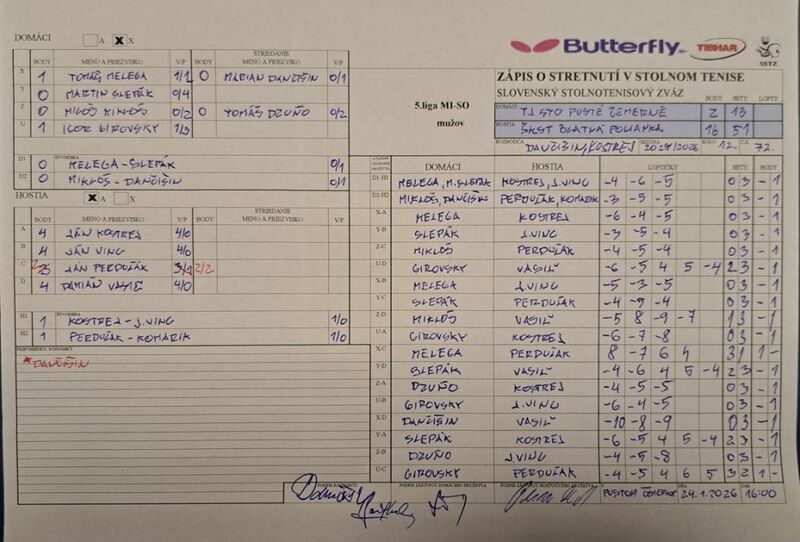 DOMÁCI A X
Butterfly TIBHAR SSTZ
ZÁPIS O STRETNUTÍ V STOLNOM TENISE
SLOVENSKÝ STOLNOTENISOVÝ ZVÄZ
5.liga MI-SO
mužov
DOMÁCI TJ STO PUSTÉ ČEMERNÉ BODY 2 SETY 13 LOPTY
HOSTIA ŠKST BLATNÁ POLIANKA 16 51
ROZHODCA DANČIŠIN, KOSTREJ SEZÓNA 2025/2026 KOLO 12. Č.Z. 72.
BODY MENO A PRIEZVISKO V/P BODY STRIEDANIE MENO A PRIEZVISKO V/P
X 1 TOMÁŠ MELEGA 1/1 0 MARIAN DANČIŠIN 0/1
Y 0 MARTIN SLEPÁK 0/4
Z 0 MILOŠ MIKLÓŠ 0/2 0 TOMÁŠ DZUŇO 0/2
U 1 IGOR GIROVSKY 1/3
D1 0 ŠTVORHRA MELEGA-SLEPÁK 0/1
D2 0 MIKLÓŠ-DANČIŠIN 0/1
HOSTIA X X
BODY MENO A PRIEZVISKO V/P BODY STRIEDANIE MENO A PRIEZVISKO V/P
A 4 JÁN KOSTREJ 4/0
B 4 JÁN VING 4/0
C JÁN PERDUŠÁK 2/2
D 4 DAMIÁN VASIĽ 4/0
H1 1 ŠTVORHRA KOSTREJ-J.VING 1/0
H2 1 PERDUŠÁK-KOMARIK 1/0
PRIPOMIENKY, POZNÁMKY
*DANČIŠIN
DOMÁCI HOSTIA LOPTIČKY SETY BODY
D1-H1 MELEGA, M.SLEPÁK KOSTREJ, J.VING -4 -6 -5 0 3 - 1
D2-H2 MIKLÓŠ, DANČIŠIN PERDUŠÁK, KOMARIK -3 -5 -5 0 3 - 1
X-A MELEGA KOSTREJ -6 -4 -5 0 3 - 1
Y-B SLEPÁK J.VING -3 -5 -4 0 3 - 1
Z-C MIKLÓŠ PERDUŠÁK -4 -5 -4 0 3 - 1
U-D GIROVSKY VASIĽ -6 -5 4 5 -4 2 3 - 1
X-B MELEGA J.VING -5 -3 -5 0 3 - 1
Y-C SLEPÁK PERDUŠÁK -4 -9 -4 0 3 - 1
Z-D MIKLÓŠ VASIĽ -5 8 -9 -7 1 3 - 1
U-A GIROVSKY KOSTREJ -6 -7 -8 0 3 - 1
X-C MELEGA PERDUŠÁK 8 -7 6 4 3 1 1 -
Y-D SLEPÁK VASIĽ -4 -6 4 5 -4 2 3 - 1
Z-A DZUŇO KOSTREJ -4 -5 -5 0 3 - 1
U-B GIROVSKY J.VING -6 -4 -5 0 3 - 1
X-D DANČIŠIN VASIĽ -10 -8 -9 0 3 - 1
Y-A SLEPÁK KOSTREJ -6 -5 4 5 -4 2 3 - 1
Z-B DZUŇO J.VING -4 -5 -8 0 3 - 1
U-C GIROVSKY PERDUŠÁK -4 -5 4 6 5 3 2 1 -
PODPIS ROZHODCU PODPIS ZÁSTUPCU DOMÁCEHO DRUŽSTVA PODPIS ZÁSTUPCU HOSŤUJÚCEHO DRUŽSTVA V PUSTOM ČEMERNÉ DŇA 24.1.2026 ČAS 16:00